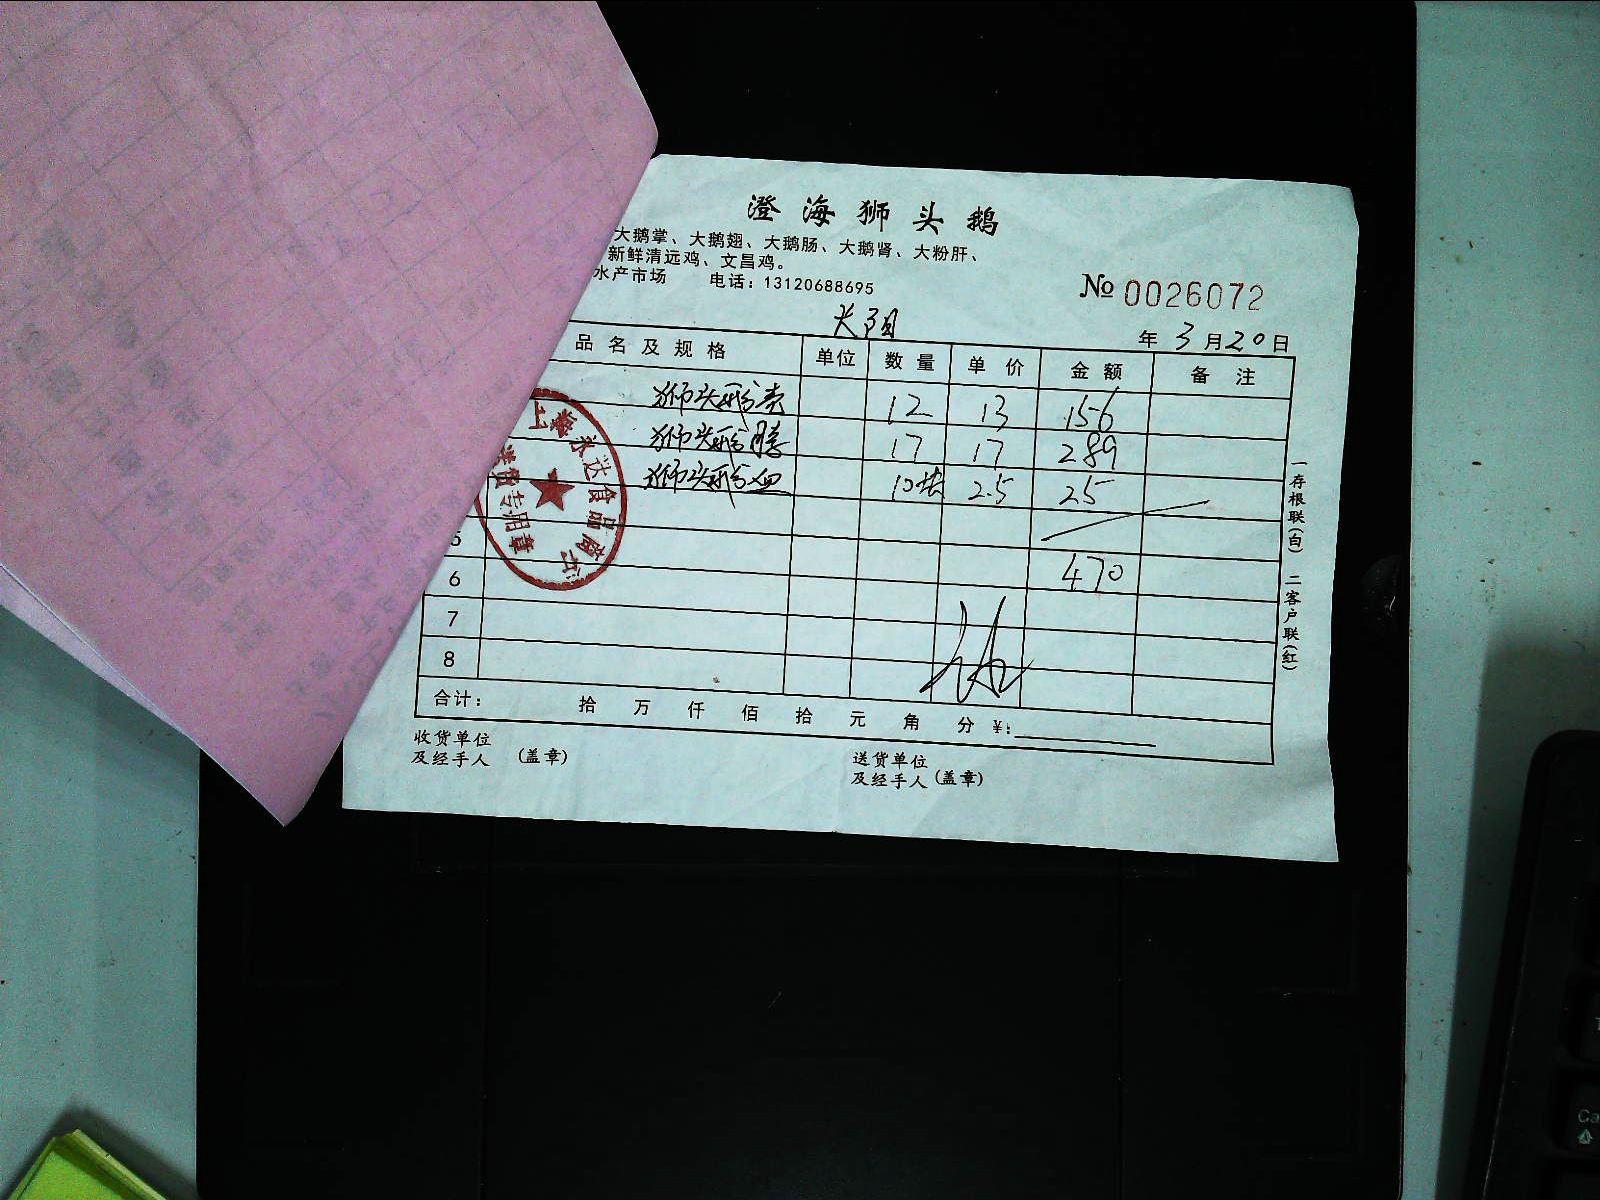 澄海狮头鹅
大鹅掌、大鹅翅、大鹅肠、大鹅肾、大粉肝、
新鲜清远鸡、文昌鸡。
水产市场 电话：13120688695
№ 0026072
年 3 月 20 日
品名及规格 单位 数量 单价 金额 备注
狮头鹅 12 13 156
狮头鹅 17 17 289
狮头鹅血 10块 2.5 25
5
6 470
7
8
合计： 拾 万 仟 佰 拾 元 角 分 ￥：
收货单位
及经手人 (盖章)
送货单位
及经手人 (盖章)
一存根联(白) 二客户联(红)
上海永达食品商行
专用章